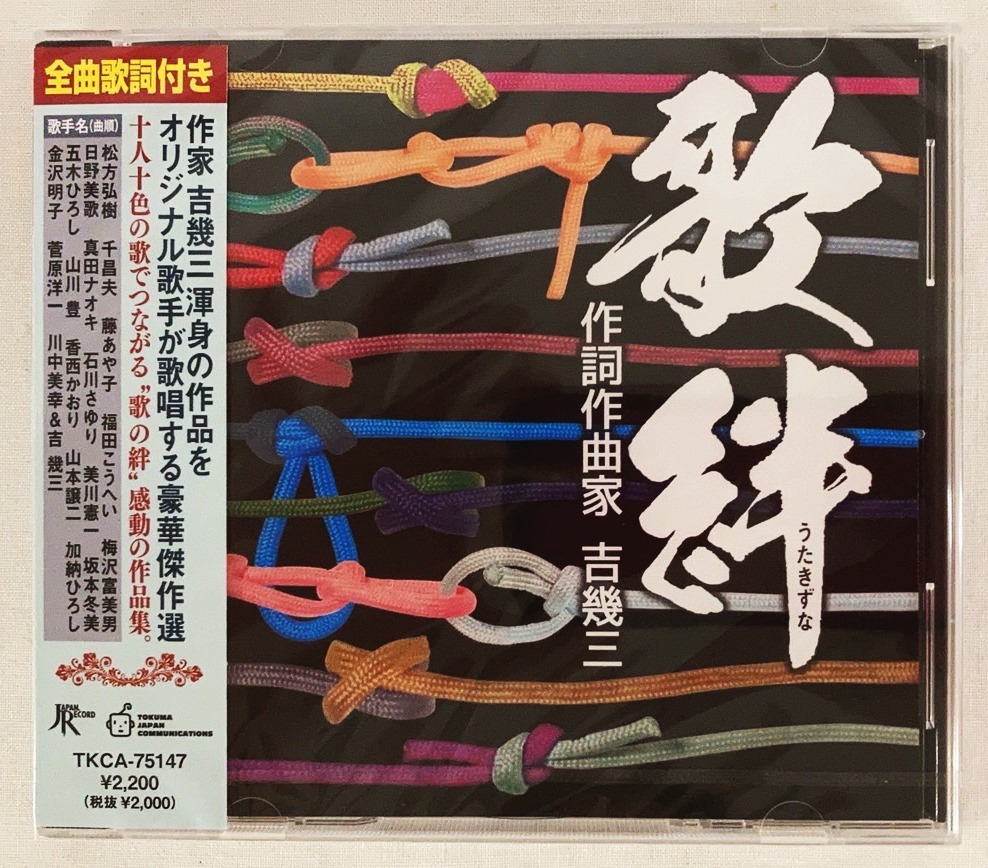 全曲歌詞付き
作家 吉幾三 渾身の作品を
オリジナル歌手が歌唱する豪華傑作選
十人十色の歌でつながる”歌の絆“感動の作品集。
歌手名(曲順)
松方弘樹 千昌夫 藤あや子 福田こうへい 梅沢富美男
日野美歌 真田ナオキ 石川さゆり 美川憲一 坂本冬美
五木ひろし 山川 豊 香西かおり 山本譲二 加納ひろし
金沢明子 菅原洋一 川中美幸&吉 幾三
JAPAN RECORD
TOKUMA
JAPAN
COMMUNICATIONS
TKCA-75147
¥2,200
(税抜 ¥2,000)
歌絆
うたきずな
作詞作曲家 吉幾三